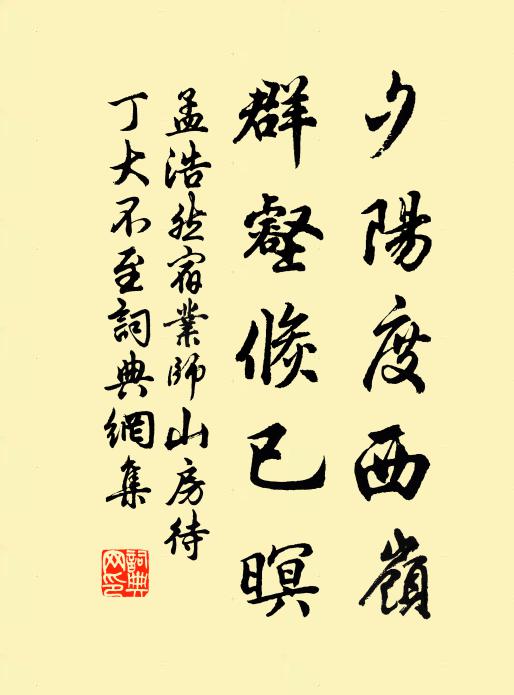 夕陽度西嶺
群壑倏已暝
孟浩然宿業師山房待
丁大不至詞典網集
詞典
网印